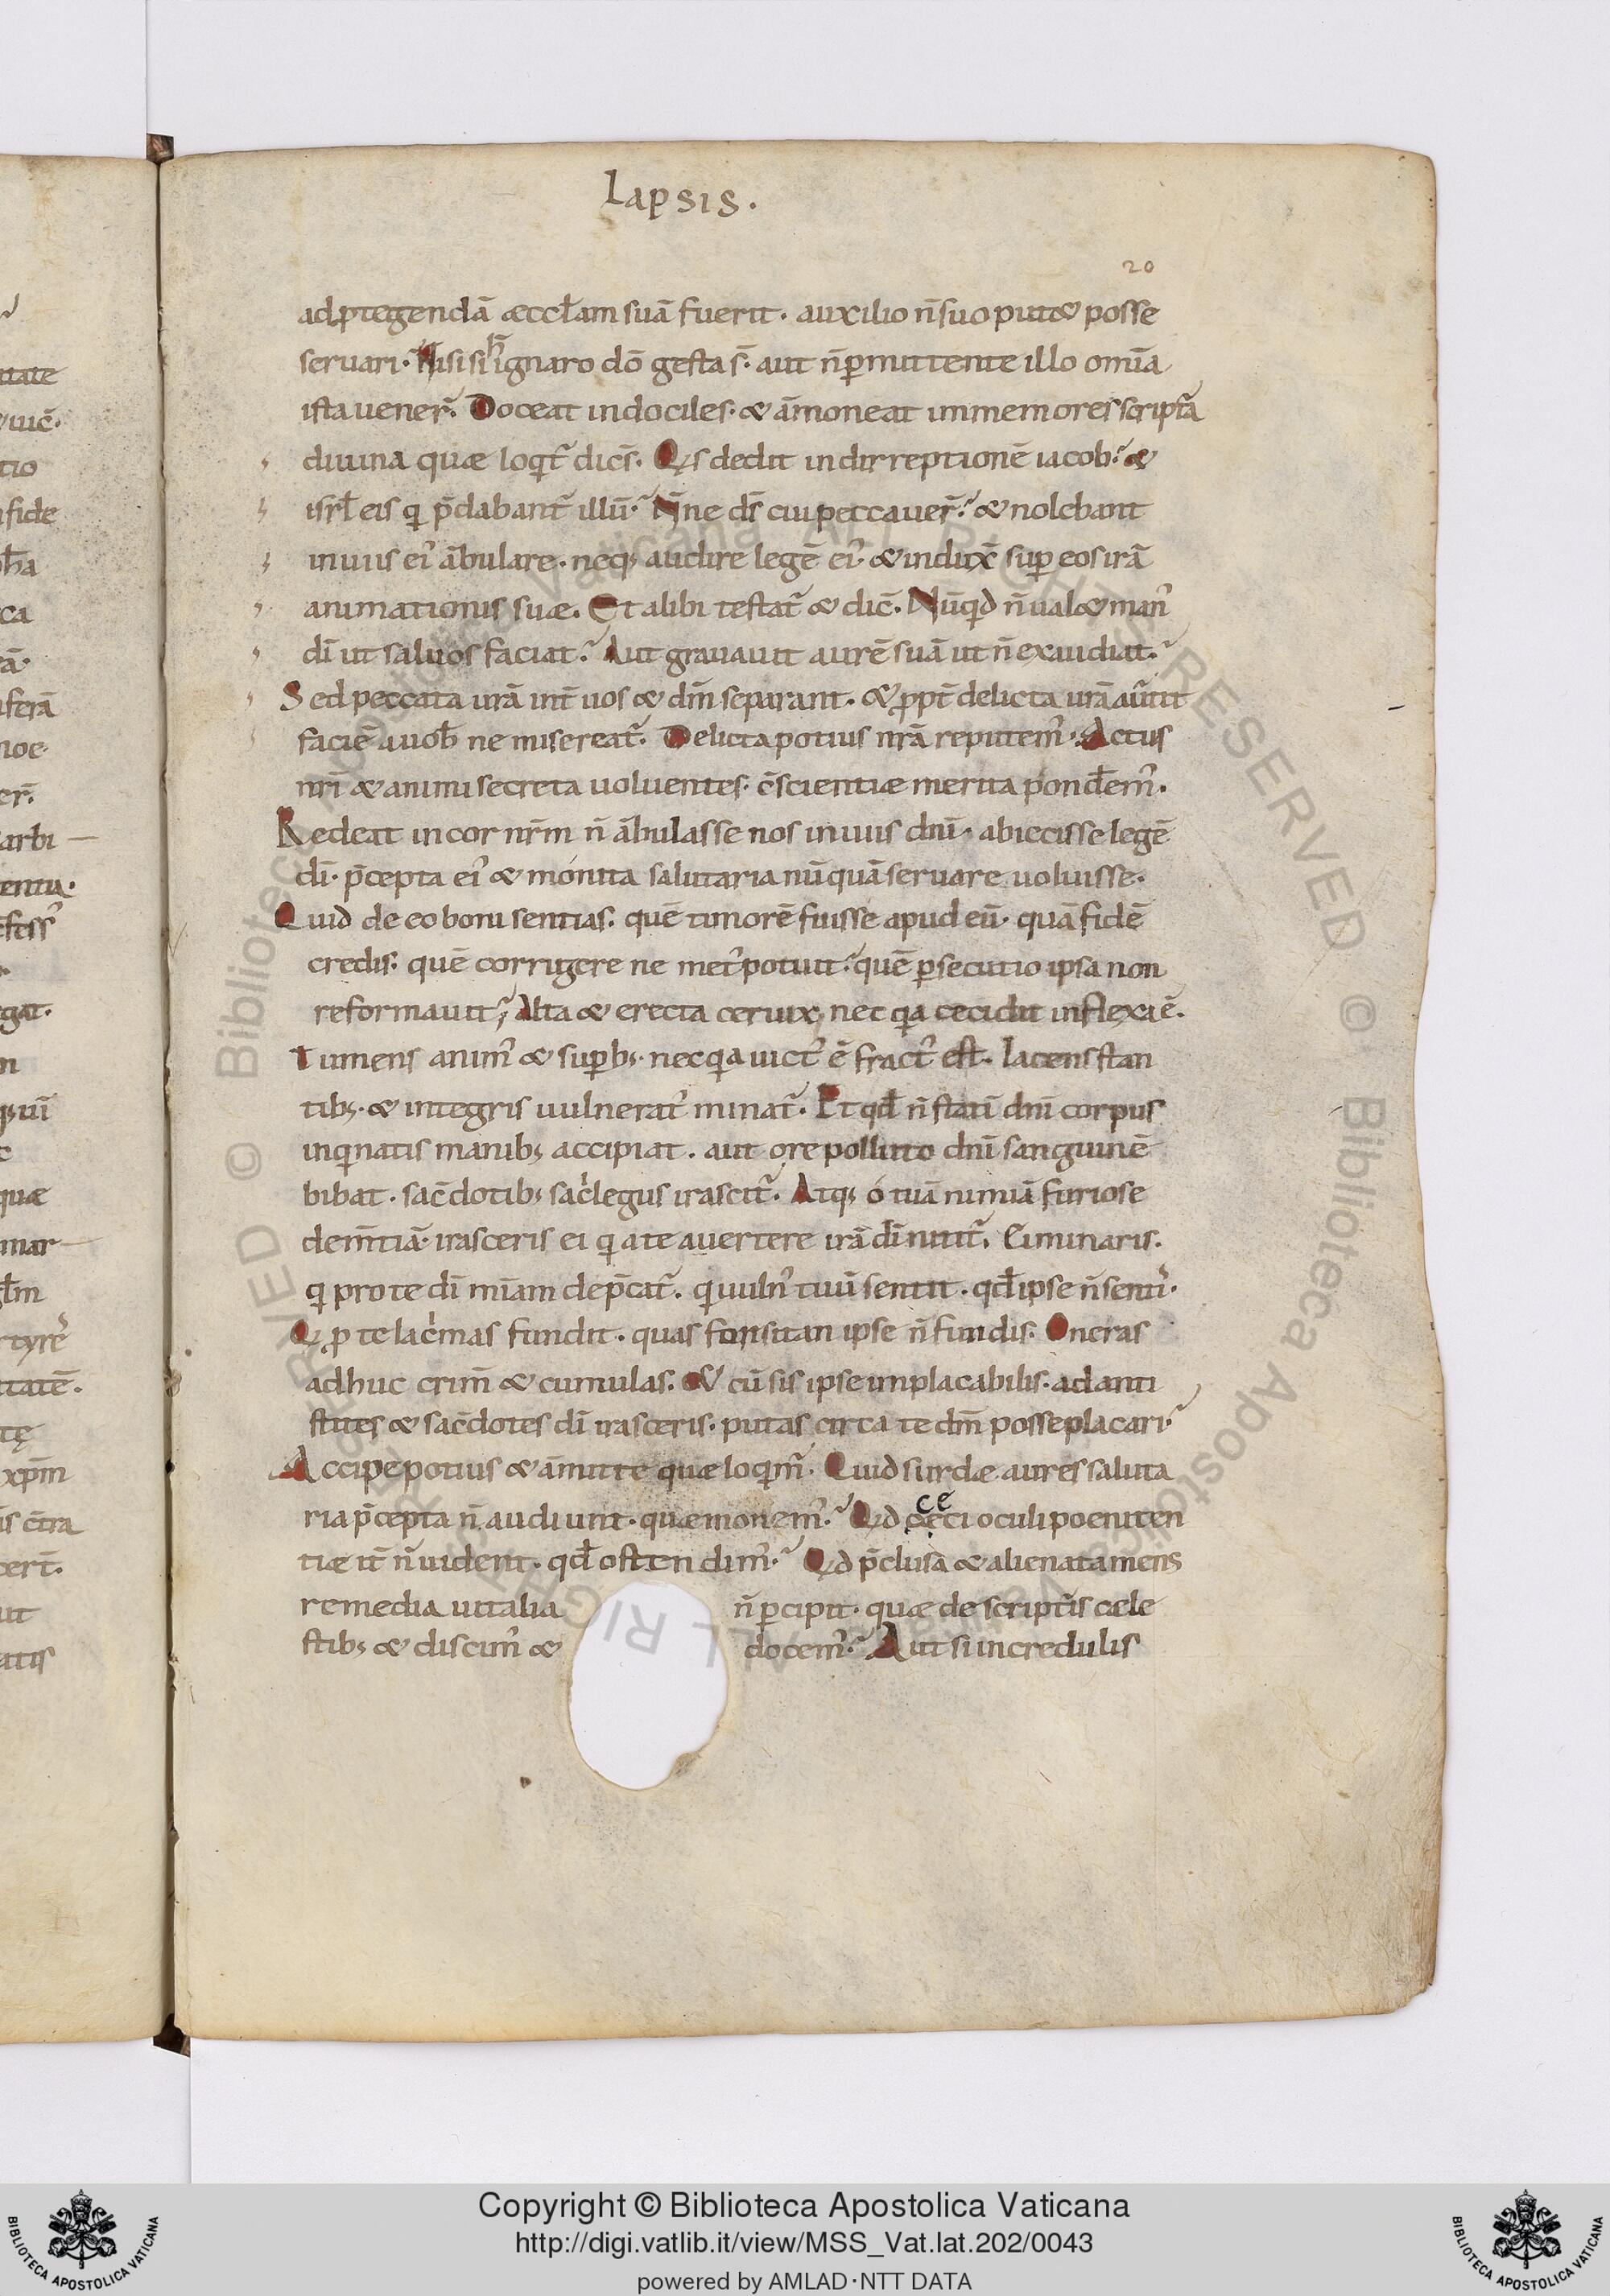 Lapsis.
20
ad ꝓtegendā æccl̄am suā fuerit. auxilio n̄ suo putet posse
seruari. Nisi si h̄ ignaro dō gesta s̄. aut n̄ ꝑmittente illo omīa
ista uener̄. Doceat indociles. & āmoneat immemores scriptā
diuina quæ loqt̄ dic̄s. Qs dedit in dirreptionē iacob? &
isrl̄ eis q p̄dabant̄ illū? N̄ne ds̄ cui peccauer̄? & nolebant
in uiis ei᾽ ābulare. neq; audire legē ei᾽. & indux̄ suꝑ eos irā
animationis suæ. Et alibi testat̄ & dic̄. Nūqd n̄ ualet man᾽
dī ut saluos faciat? Aut grauauit aurē suā ut n̄ exaudiat?
Sed peccata urā int̄ uos & dm̄ separant. & ꝓpt̄ delicta urā aūtit
faciē a uob̄ ne misereat̄. Delicta potius nrā reputem᾽. Actus
nrī & animi secreta uoluentes. c̄scientiæ merita pond̄em᾽.
Redeat in cor nrm̄ n̄ ābulasse nos in uiis dnī. abiecisse legē
dī. p̄cepta ei᾽ & monita salutaria nūquā seruare uoluisse.
Quid de eo boni sentias. quē timorē fuisse apud eū. quā fidē
credis. quē corrigere ne met᾽ potuit? quē ꝑsecutio ipsa non
reformauit? Alta & erecta ceruix, nec qa cecidit inflexa ē.
Tumens anim᾽ & suꝑb;. nec qa uict᾽ ē fract᾽ est. Iacens stan
tib;. & integris uulnerat᾽ minat̄. Et qd̄ n̄ statī dnī corpus
inqnatis manib; accipiat. aut ore polluto dnī sanguinē
bibat. sac̄dotib; sac̓legus irascit̄. Atq; o tuā nimiā furiose
dem̄tiā. irasceris ei q a te auertere irā dī nitit̄. Ciminaris.
q pro te dī mīam dep̄cat̄. q uuln᾽ tuū sentit. qd̄ ipse n̄ senti᾽.
Q ꝓ te lac̓mas fundit. quas forsitan ipse n̄ fundis. Oneras
adhuc crim̄ & cumulas. Et cū sis ipse implacabilis. ad anti
stites & sac̄dotes dī irasceris. putas circa te dm̄ posse placari?
Accipe potius & āmitte quæ loqm᾽. Quid surdæ aures saluta
ria p̄cepta n̄ audiunt. quæ monem᾽? Qd cęci oculi poeniten
ce
tiæ it̄ n̄ uident. qd̄ ostendim᾽? Qd p̄clusa & alienata mens
remedia uitalia n̄ ꝑcipit. quæ de scriptīs cæle
stib; & discim᾽ & docem᾽? Aut si incredulis
Copyright © Biblioteca Apostolica Vaticana
http://digi.vatlib.it/view/MSS_Vat.lat.202/0043
powered by AMLAD·NTT DATA
BIBLIOTECA APOSTOLICA VATICANA
BIBLIOTECA APOSTOLICA VATICANA